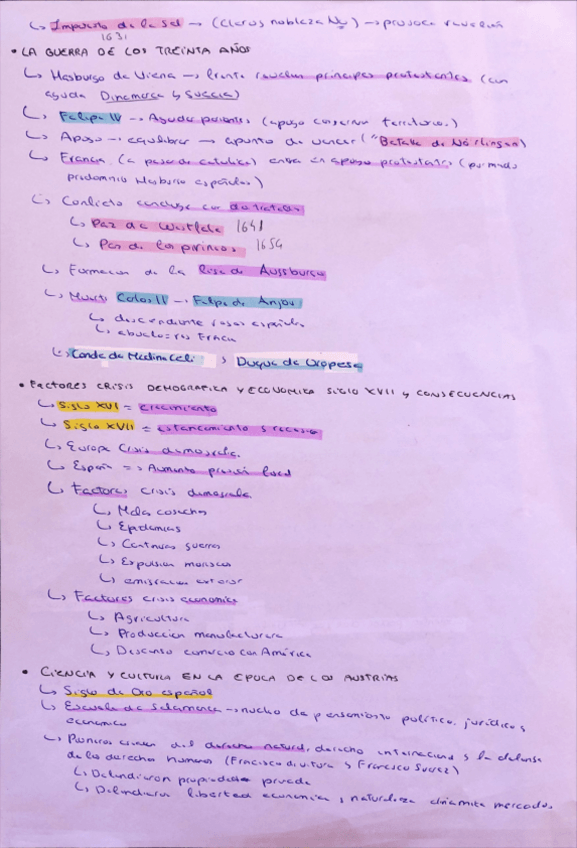 ↳ Impuesto de la sal → (Clero y nobleza No) → provoca rebelión
1631
• LA GUERRA DE LOS TREINTA AÑOS
↳ Hasburgo de Viena → frente revuelven principes protestantes (con
ayuda Dinamarca y Suecia)
↳ Felipe IV → Ayuda parientes (apoyo conservar territorios.)
↳ Apoyo → equilibrar → apunto de vencer ("Batalla de Nördlingen)
↳ Francia (a pesar de católica) entra en apoyo protestantes (por miedo
predominio Hasburgo españoles)
↳ Conflicto concluye con dos tratados
↳ Paz de Westfalia 1648
↳ Paz de los pirineos 1659
↳ Formacion de la liga de Aussburgo
↳ Muerte Calos II → Felipe de Anjou
↳ descendiente españoles
↳ abuelo = rey Francia
↳ Conde de Medinaceli y Duque de Oropesa
• FACTORES CRISIS DEMOGRAFICA Y ECONOMICA SIGLO XVII Y CONSECUENCIAS
↳ Siglo XVI = crecimiento
↳ Siglo XVII = estancamiento y recesión
↳ Europa Crisis demografia.
↳ España => Aumento presión fiscal
↳ Factores crisis demografia
↳ Malas cosechas
↳ Epidemias
↳ Continuas guerras
↳ Expulsion moriscos
↳ emigracion exterior
↳ Factores crisis economica
↳ Agricultura
↳ Produccion manufacturera
↳ Descenso comercio con América
• CIENCIA Y CULTURA EN LA EPOCA DE LOS AUSTRIAS
↳ Siglo de Oro español
↳ Escuela de Salamanca → nucleo de pensamiento político, jurídico y
economico
↳ Pioneros del derecho natural, derecho internacional y la defensa
de los derechos humanos (Francisco de vitoria y Francisco Suarez)
↳ Defendieron propiedad privada
↳ Defendieron libertad economica y naturaleza dinamica mercados